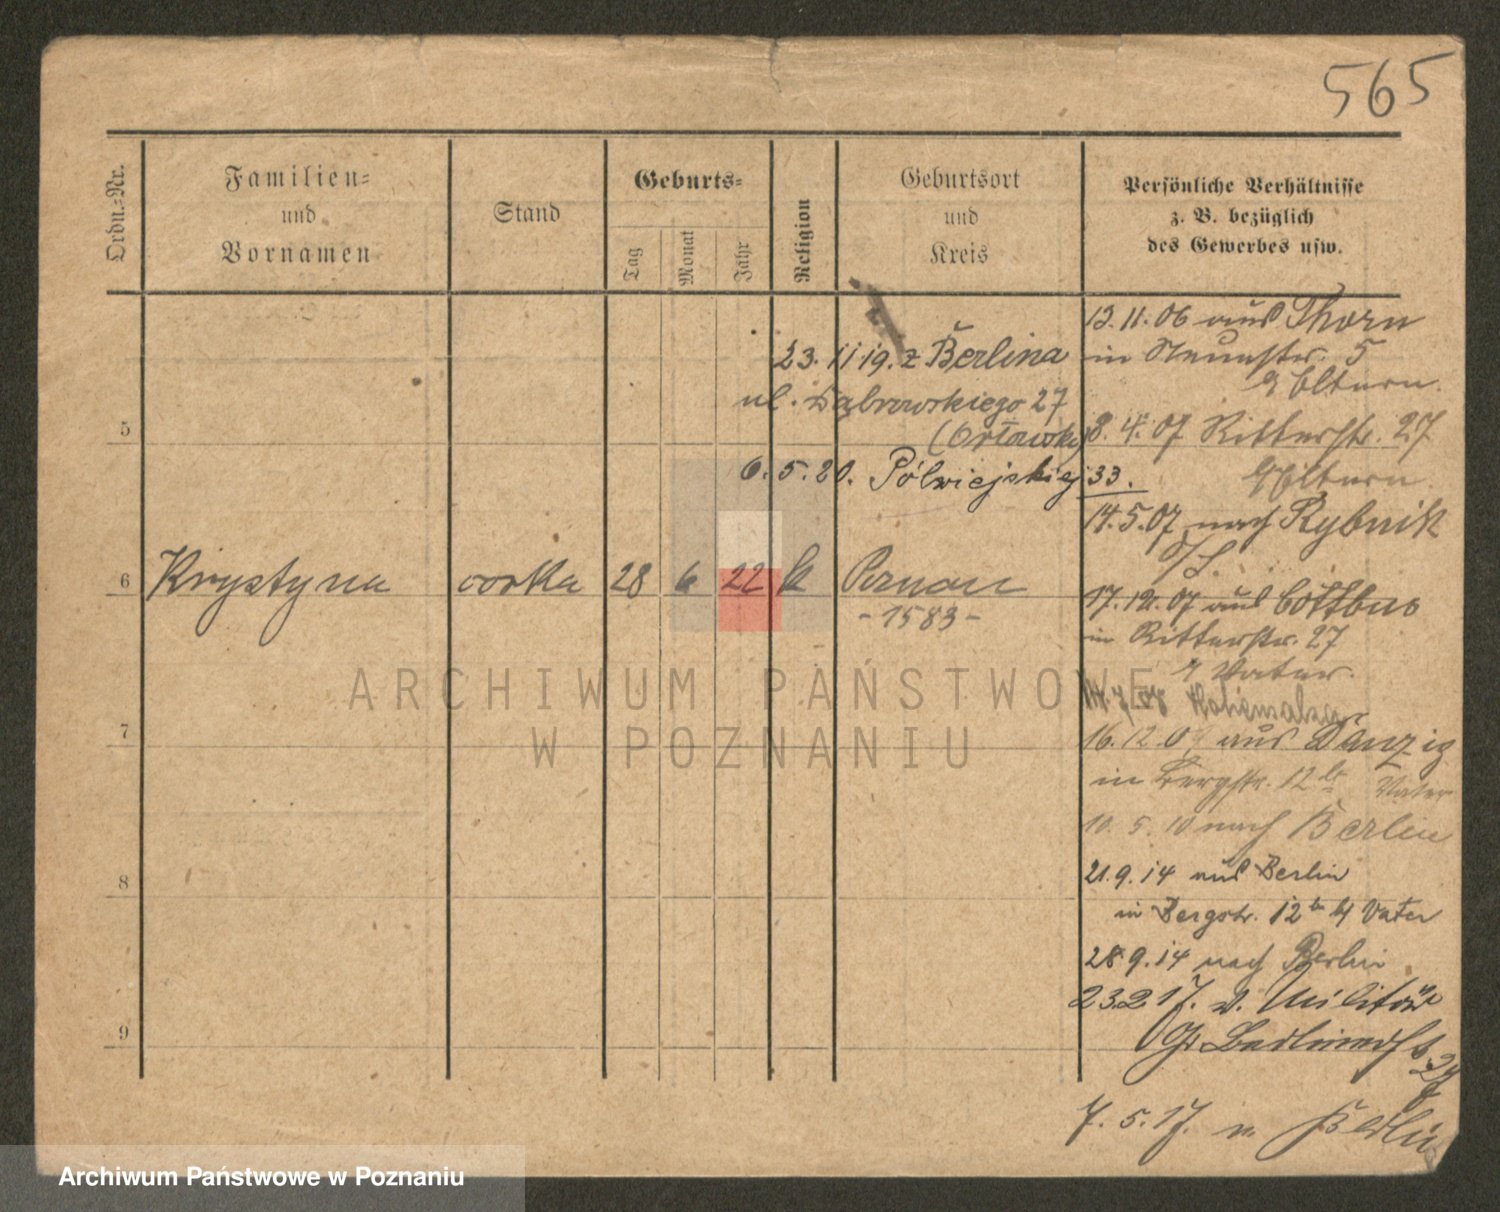 565
Ordn.-Nr.
Familien-
und
Vornamen
Stand
Geburts-
Tag
Monat
Jahr
Religion
Geburtsort
und
Kreis
Persönliche Verhältnisse
z. B. bezüglich
des Gewerbes usw.
23. 11 19. z Berlina
ul. Dąbrowskiego 27
6. 5. 20. Półwiejskiej 33.
5
6 Krystyna corka 28 6 22 k Poznań
- 1583 -
7
8
9
13. 11. 06 aus Thorn
in 5
Eltern.
8. 4. 07 Ritterstr. 27
Eltern.
14. 5. 07 nach Rybnik
17. 12. 07 aus Cottbus
in Ritterstr. 27
Vater.
Hohensalza
16. 12. 0 aus Danzig
in Bergstr. 12 b Vater
10. 5. 10 nach Berlin
21. 9. 14 aus Berlin
in Bergstr. 12 b Vater
28. 9. 14 nach Berlin
23. 2 17. v. Militär
7. 5. 17. n. Berlin
ARCHIWUM PAŃSTWOWE
W POZNANIU
Archiwum Państwowe w Poznaniu